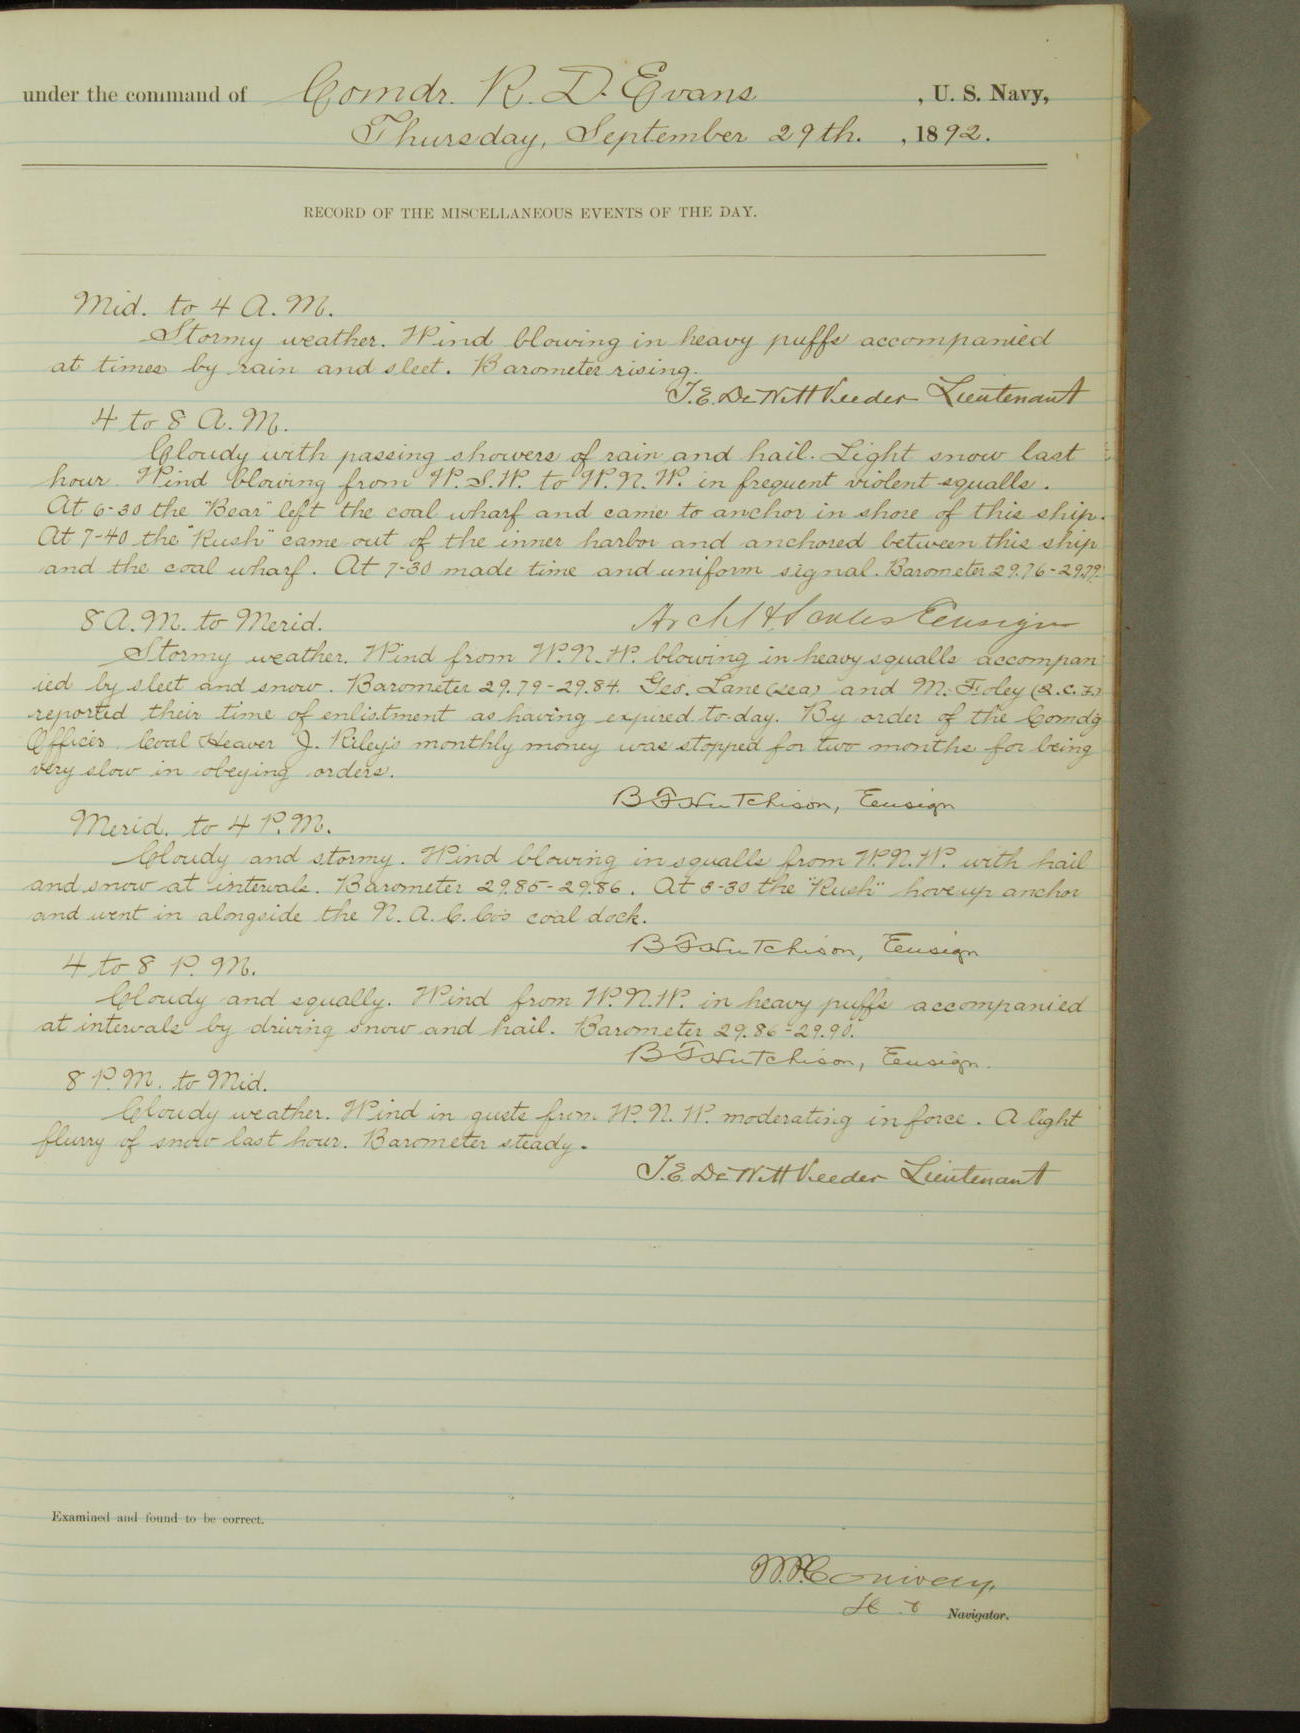 under the command of Comdr. R. D. Evans , U. S. Navy,
Thursday, September 29th. , 1892.
RECORD OF THE MISCELLANEOUS EVENTS OF THE DAY.
Mid. to 4 A.M.
Stormy weather. Wind blowing in heavy puffs accompanied
at times by rain and sleet. Barometer rising.
T.E. DeWitt Veeder Lieutenant
4 to 8 A.M.
Cloudy with passing showers of rain and hail. Light snow last
hour. Wind blowing from W.S.W. to W.N.W. in frequent violent squalls.
At 6-30 the "Bear" left the coal wharf and came to anchor in shore of this ship.
At 7-40 the "Rush" came out of the inner harbor and anchored between this ship
and the coal wharf. At 7-30 made time and uniform signal. Barometer 29.76-29.79.
8 A.M. to Merid.
Arch H. Ensign
Stormy weather. Wind from W.N.W. blowing in heavy squalls accompan
ied by sleet and snow. Barometer 29.79-29.84. Geo. Lane (sea) and M. Foley (2.C.F.)
reported their time of enlistment as having expired to-day. By order of the Comdg
Officer Coal Heaver J. Riley's monthly money was stopped for two months for being
very slow in obeying orders.
B F Hutchison, Ensign
Merid. to 4 P.M.
Cloudy and stormy. Wind blowing in squalls from W.N.W. with hail
and snow at intervals. Barometer 29.85-29.86. At 3-30 the "Rush" hove up anchor
and went in alongside the N.A.C. Co's coal dock.
B F Hutchison, Ensign
4 to 8 P.M.
Cloudy and squally. Wind from W.N.W. in heavy puffs accompanied
at intervals by driving snow and hail. Barometer 29.86-29.90.
B F Hutchison, Ensign.
8 P.M. to Mid.
Cloudy weather. Wind in gusts from W.N.W. moderating in force. A light
flurry of snow last hour. Barometer steady.
T.E. DeWitt Veeder Lieutenant
Examined and found to be correct.
Navigator.